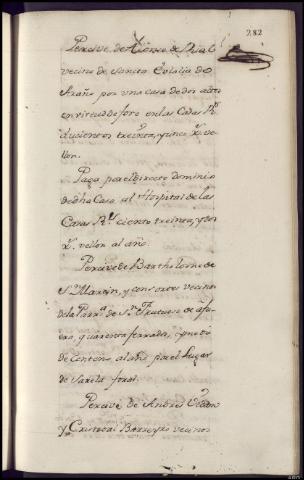 282
Percive de Alonso de Dios
vecino de Sancta Eolalia de
Arañs por una casa de dos altos
en virtud de foro en las Casas Rs
ducientos treinta, y cinco rs ve-
llon.
Paga por el directo dominio
de dha Casa al Hospital de las
Casas Rs ciento treinta, y dos
rs vellon al año.
Percive de Bartholome de
Sn Martin, y consortes vecinos
de la Parra de Sn Frutuoso de afu-
era, quarenta ferrados, y medio
de Centeno al año por el Lugar
de Varela foral.
Percive de Andres
y Cristobal Barreyro vecinos